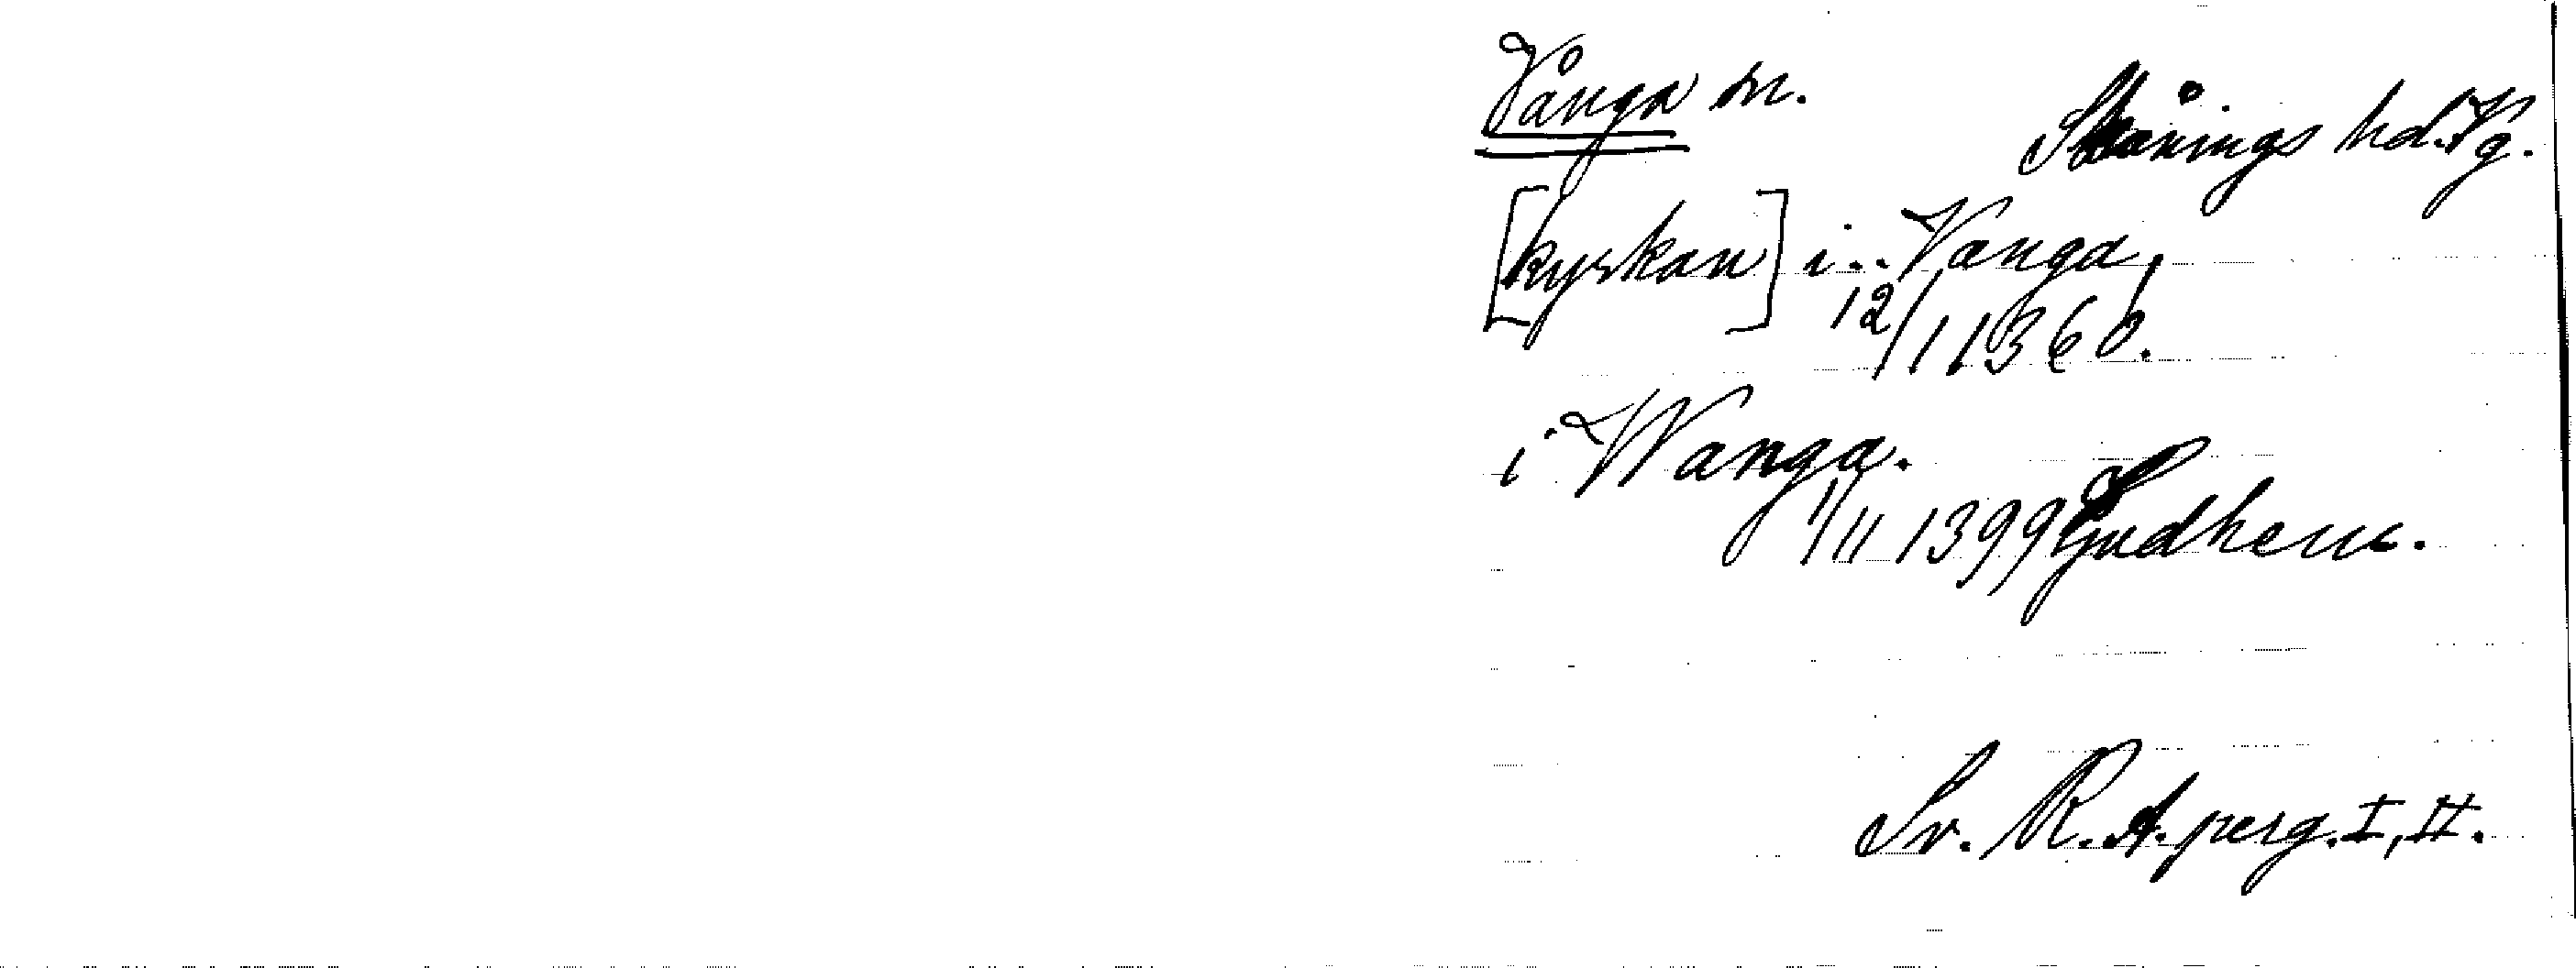 Vånga sn.
Skånings hd. Vg.
[kyrkan] i.. Vanga
12/1 1360.
i Wanga.
1/11 1399 Gudhem.
Sv. R. A. perg. I, II.